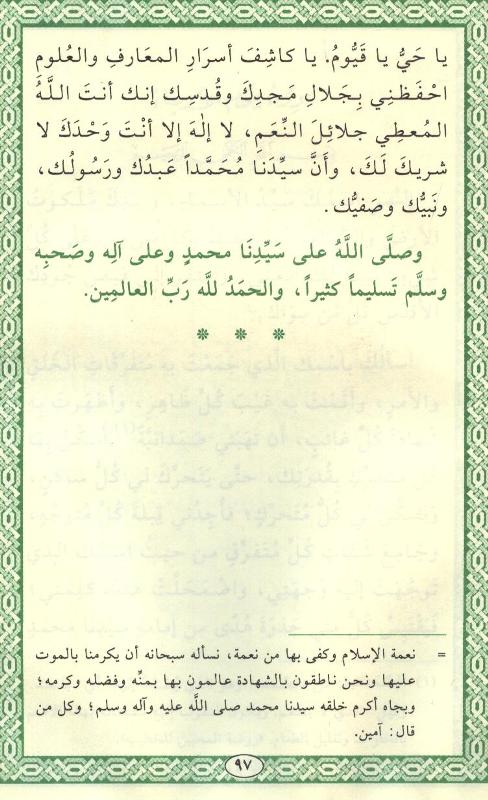 يا حَيُّ يا قَيُّومُ. يا كاشِفَ أسرَارِ المعَارفِ والعُلومِ
احْفَظنِي بِجَلالِ مَجدِكَ وقُدسِك إنك أنتَ اللَّهُ
المُعطِي جلائِلَ النِّعَمِ، لا إلٰهَ إلا أنْتَ وَحْدَكَ لا
شريكَ لَكَ، وأنَّ سيِّدَنَا مُحَمَّداً عَبدُك ورَسُولُك،
ونَبيُّك وصَفيُّك.
وصلَّى اللَّهُ على سَيِّدِنَا محمدٍ وعلى آلِه وصَحبِه
وسلَّم تَسليماً كثيراً، والحمَدُ للَّه رَبِّ العالمِين.
* * *
= نعمة الإسلام وكفى بها من نعمة، نسأله سبحانه أن يكرمنا بالموت
عليها ونحن ناطقون بالشهادة عالمون بها بمنِّه وفضله وكرمه؛
وبجاه أكرم خلقه سيدنا محمد صلى اللَّه عليه وآله وسلم؛ وكل من
قال: آمين.
٩٧